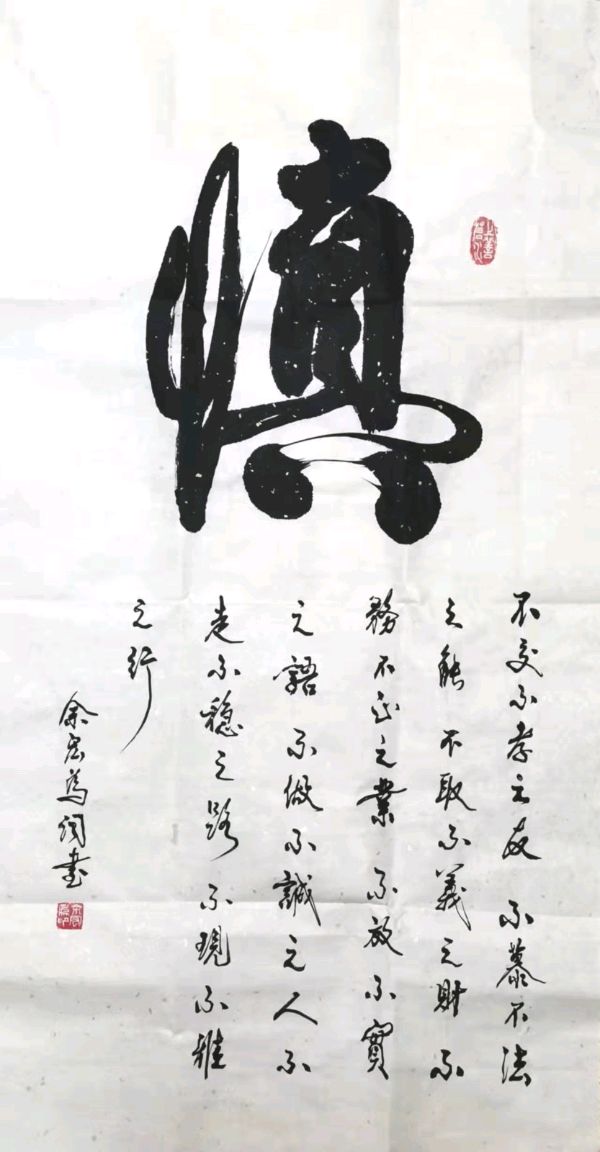 慎
不交不孝之友 不慕不法
之能 不取不義之財 不
務不正之業 不放不實
之語 不做不誠之人 不
走不穩之路 不現不雅
之行
余宏為 詞書
上善若水